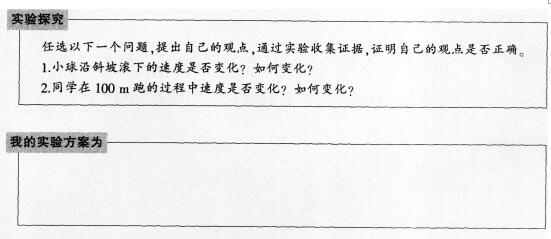 实验探究
任选以下一个问题,提出自己的观点,通过实验收集证据,证明自己的观点是否正确。
1.小球沿斜坡滚下的速度是否变化? 如何变化?
2.同学在 100 m 跑的过程中速度是否变化? 如何变化?
我的实验方案为